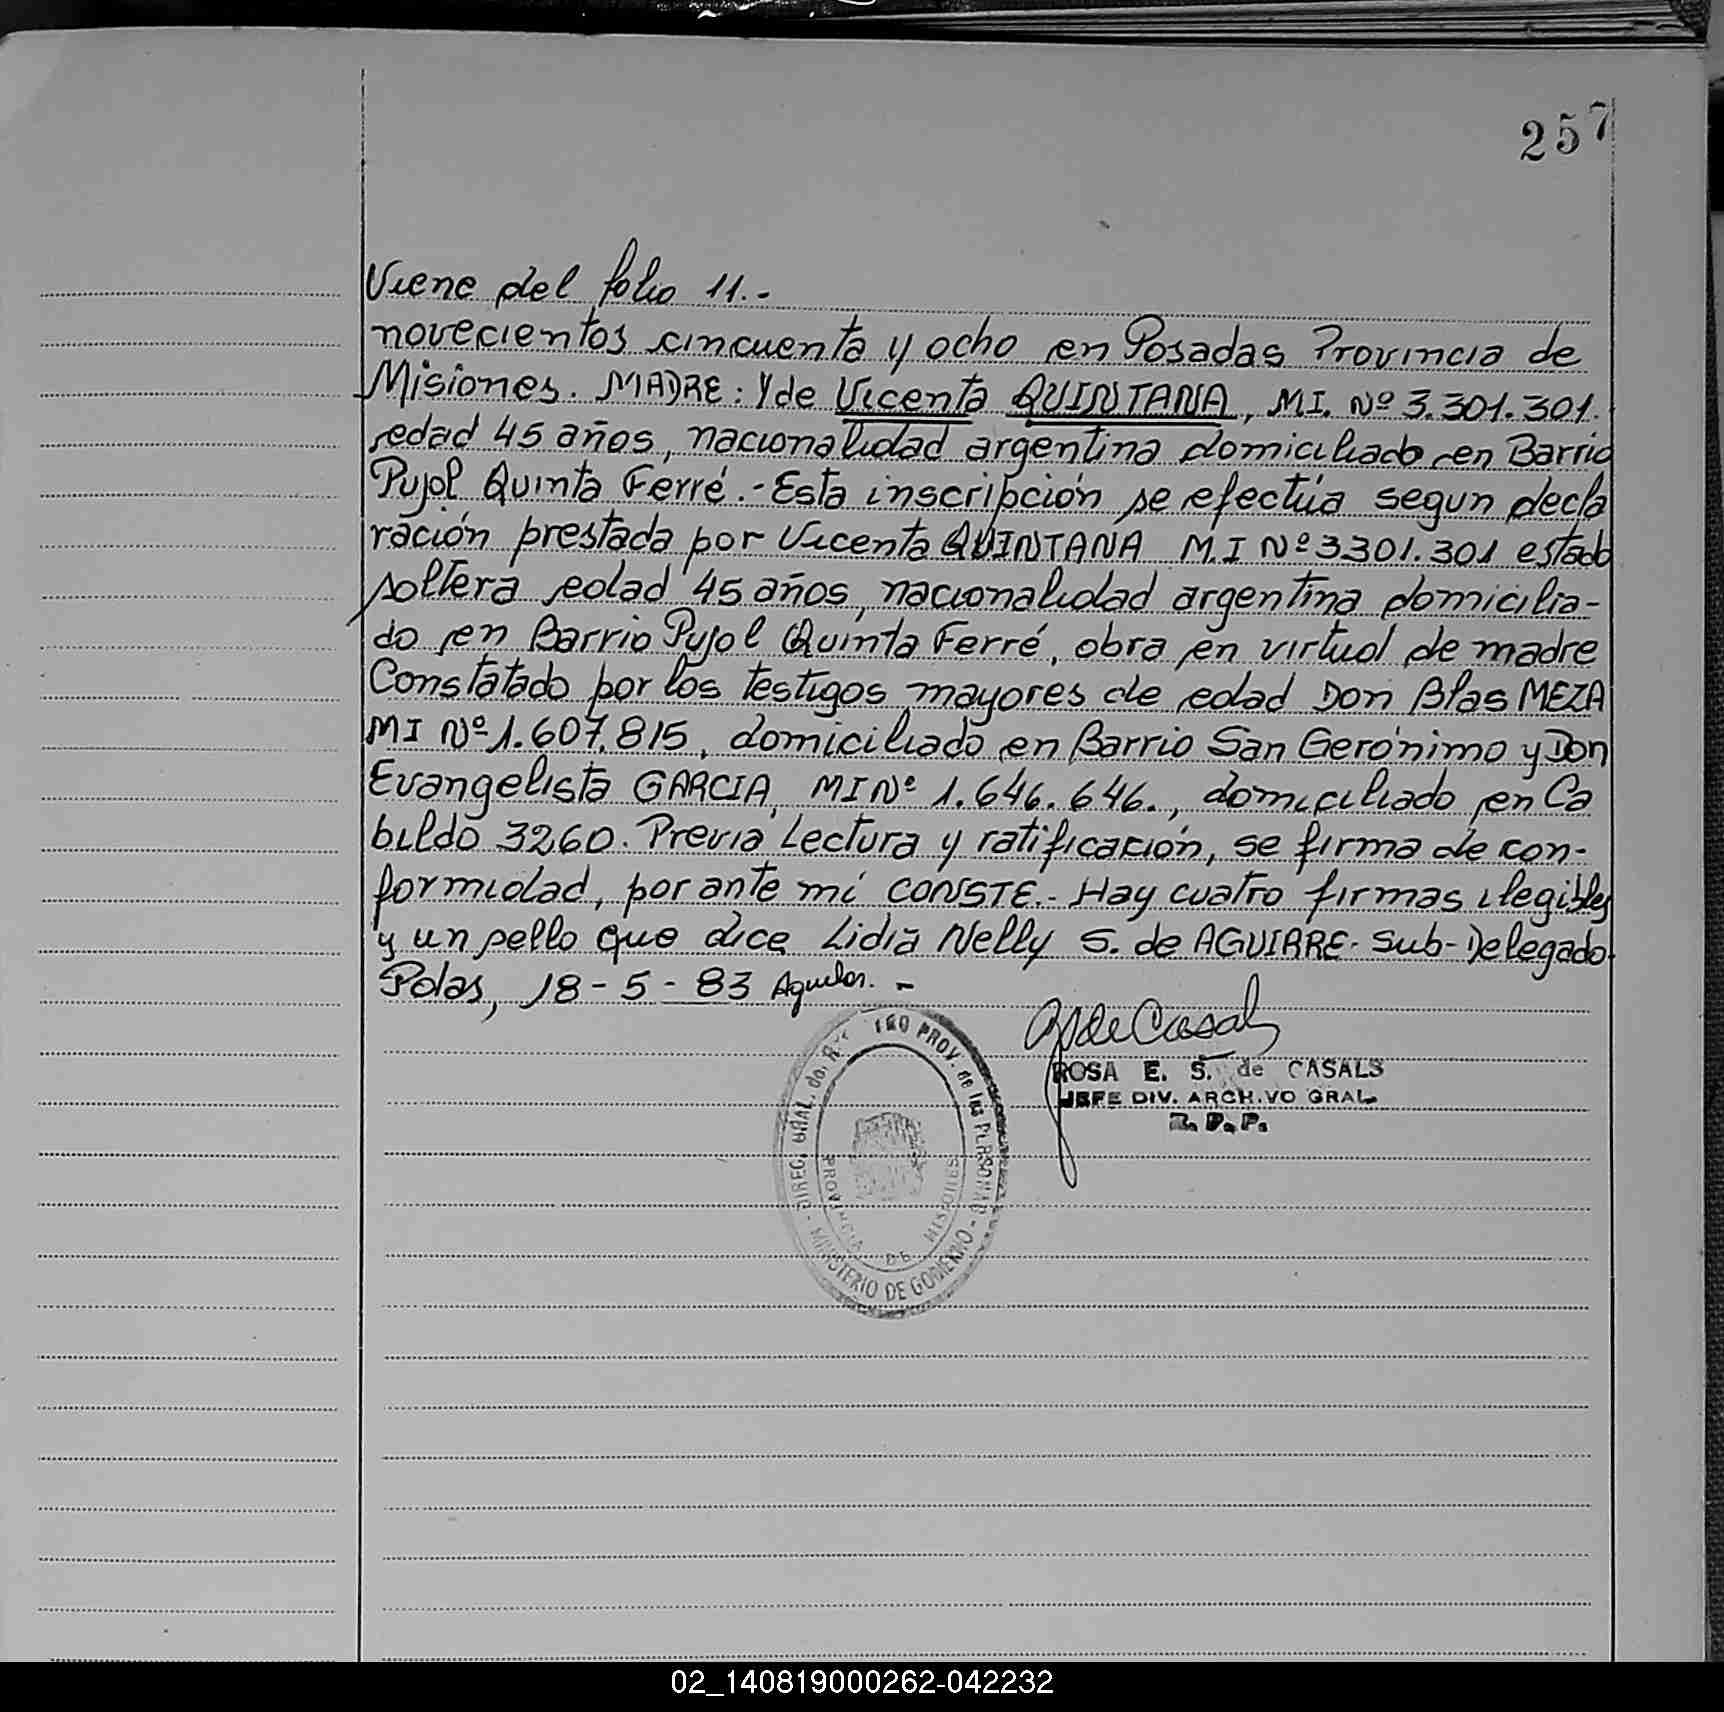 257
Viene del folio 11.-
novecientos cincuenta y ocho en Posadas Provincia de
Misiones. MADRE: y de Vicenta QUINTANA, MI. Nº 3.301.301.
edad 45 años, nacionalidad argentina domiciliado en Barrio
Pujol Quinta Ferré.- Esta inscripción se efectúa segun decla
ración prestada por Vicenta QUINTANA M.I Nº 3301.301 estado
soltera edad 45 años, nacionalidad argentina domicilia-
do en Barrio Pujol Quinta Ferré, obra en virtud de madre
Constatado por los testigos mayores de edad Don Blas MEZA
MI Nº 1.607.815, domiciliado en Barrio San Gerónimo y Don
Evangelista GARCIA, MI Nº 1.646.646., domiciliado en Ca
bildo 3260. Previa Lectura y ratificación, se firma de con-
formidad, por ante mí CONSTE.- Hay cuatro firmas ilegibles
y un sello que dice Lidia Nelly S. de AGUIRRE. Sub-Delegado.
Pdas, 18-5-83
de Casals
ROSA E. S. de CASALS
JEFE DIV. ARCHIVO GRAL.
R. P. P.
DIREC. GRAL. de PROV. de las PERSONAS - MINISTERIO DE GOBIERNO -
PROVINCIA DE MISIONES
02_140819000262-042232